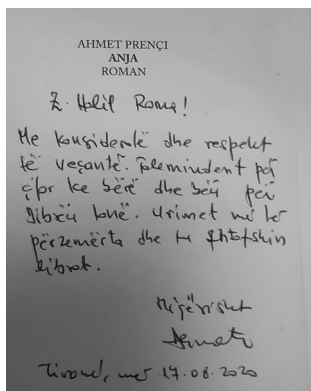 AHMET PRENÇI
ANJA
ROMAN
Z. Halil Rama!
Me konsideratë dhe respekt
të veçantë. Faleminderit për
ç'far ke bërë dhe bën për
Dibrën tonë. Urimet më të
përzemërta dhe tu shtofshin
librat.
Miqësisht
Ahmeti
Tiranë, më 17.08.2020